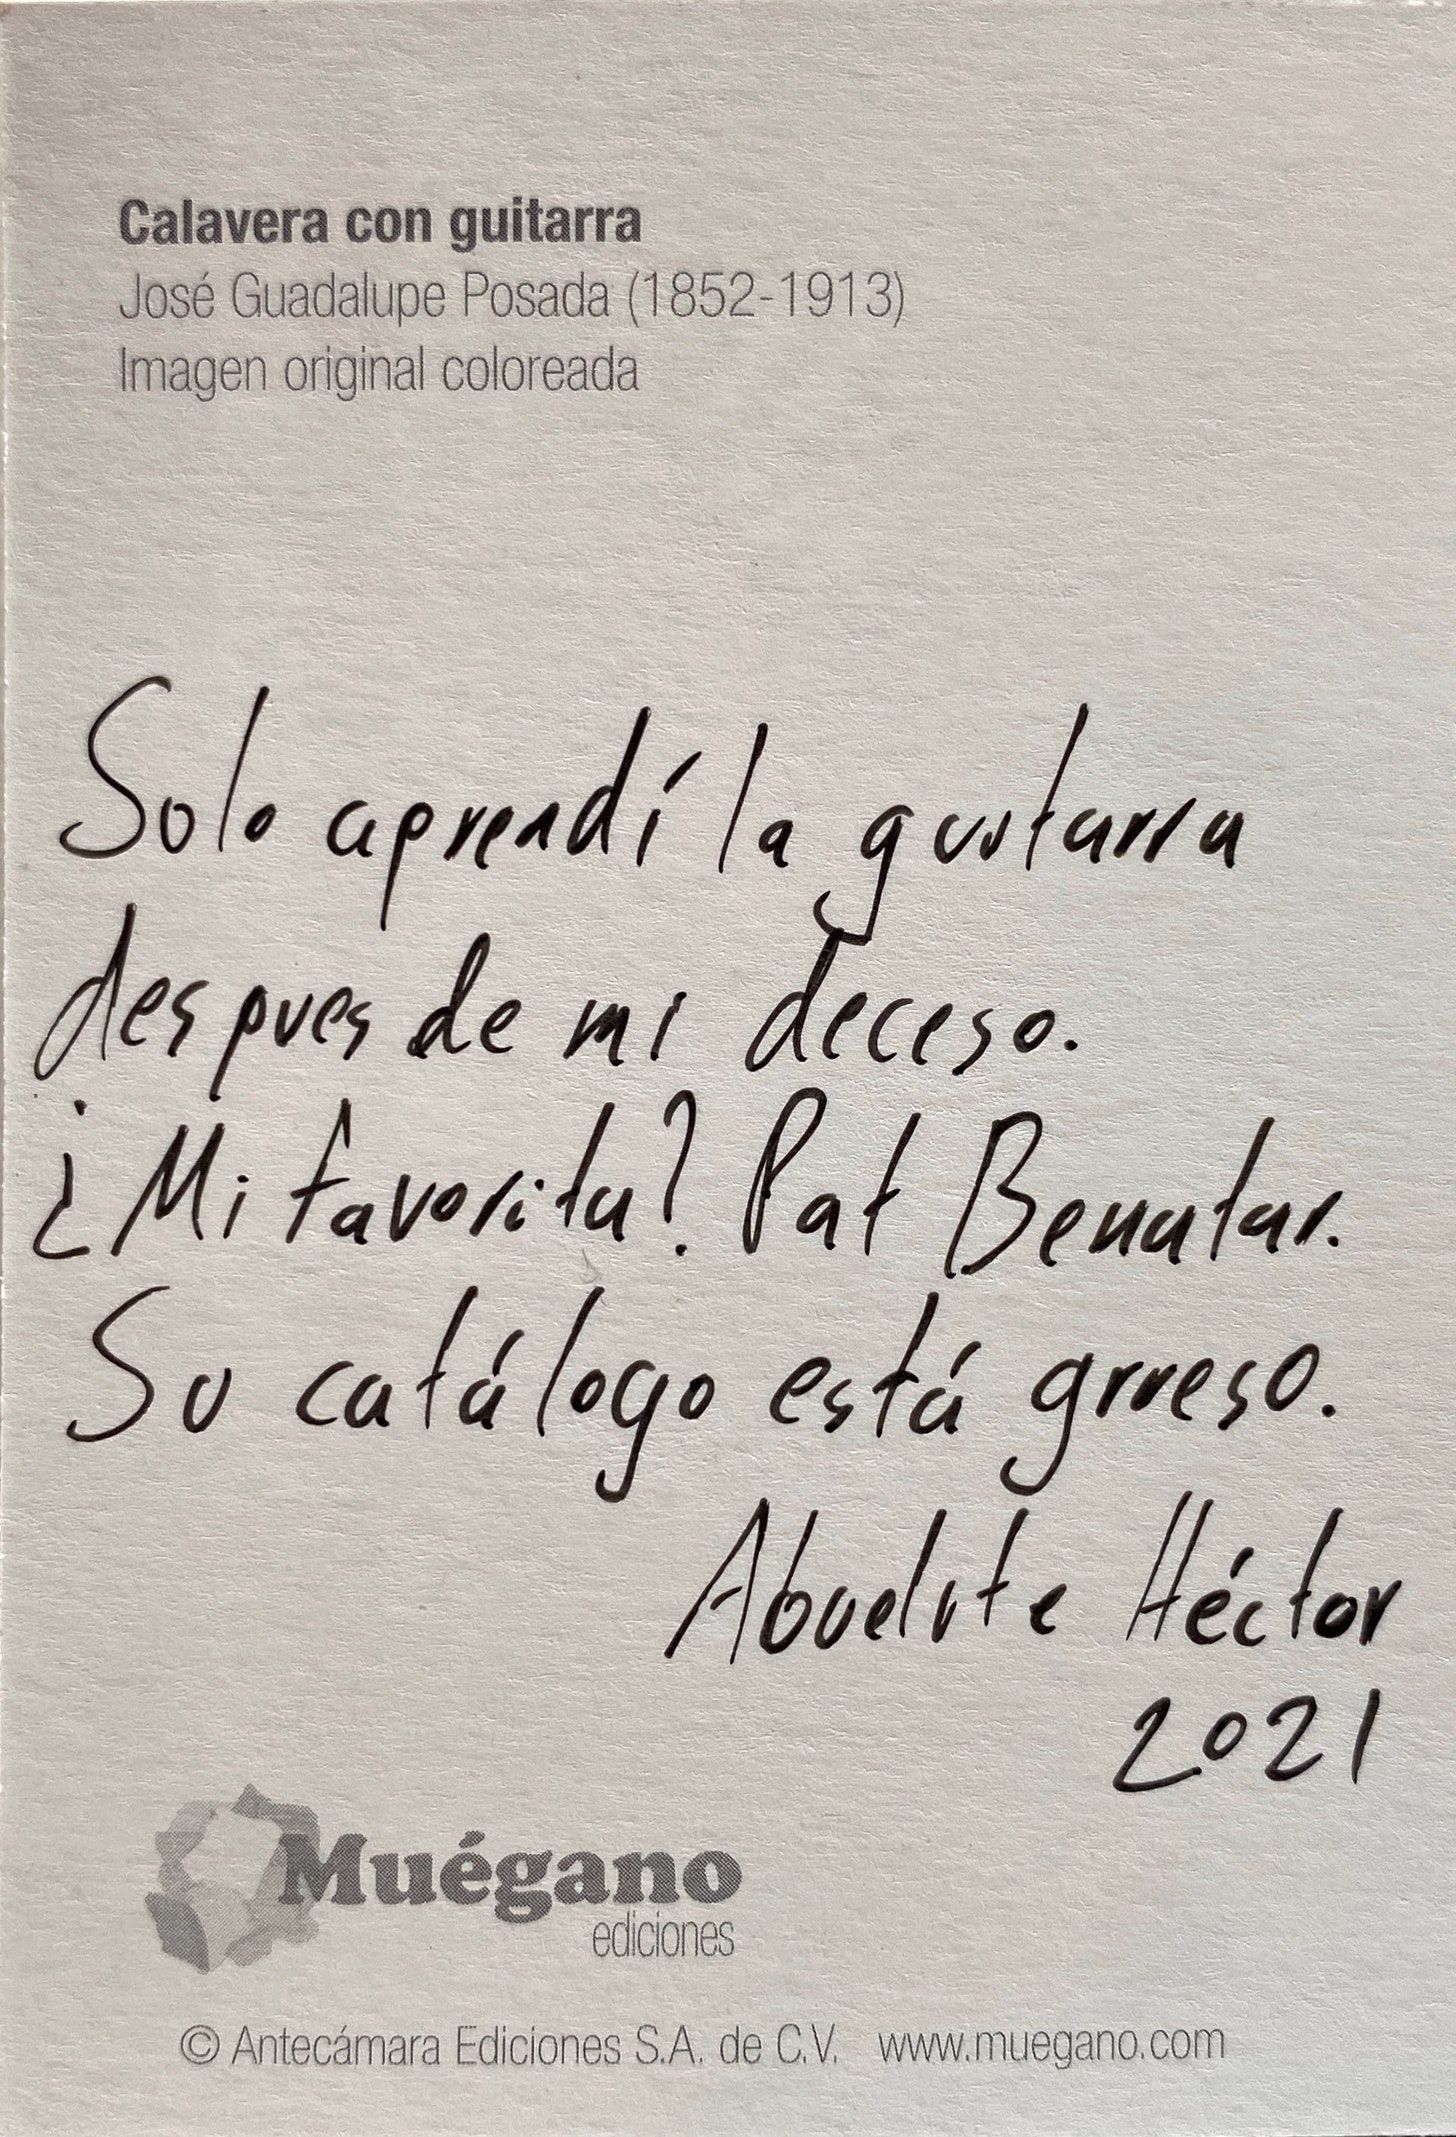 Calavera con guitarra
José Guadalupe Posada (1852-1913)
Imagen original coloreada
Solo aprendí la guitarra
despues de mi deceso.
¿Mi favorita? Pat Benatar.
Su catálogo está grueso.
Abuelite Héctor
2021
Muégano
ediciones
© Antecámara Ediciones S.A. de C.V. www.muegano.com